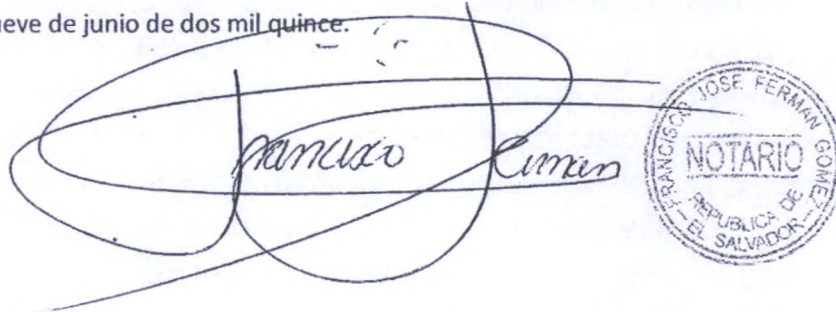 ueve de junio de dos mil quince.
Francisco Ferman
FRANCISCO JOSE FERMAN GOMEZ
NOTARIO
REPUBLICA DE
EL SALVADOR